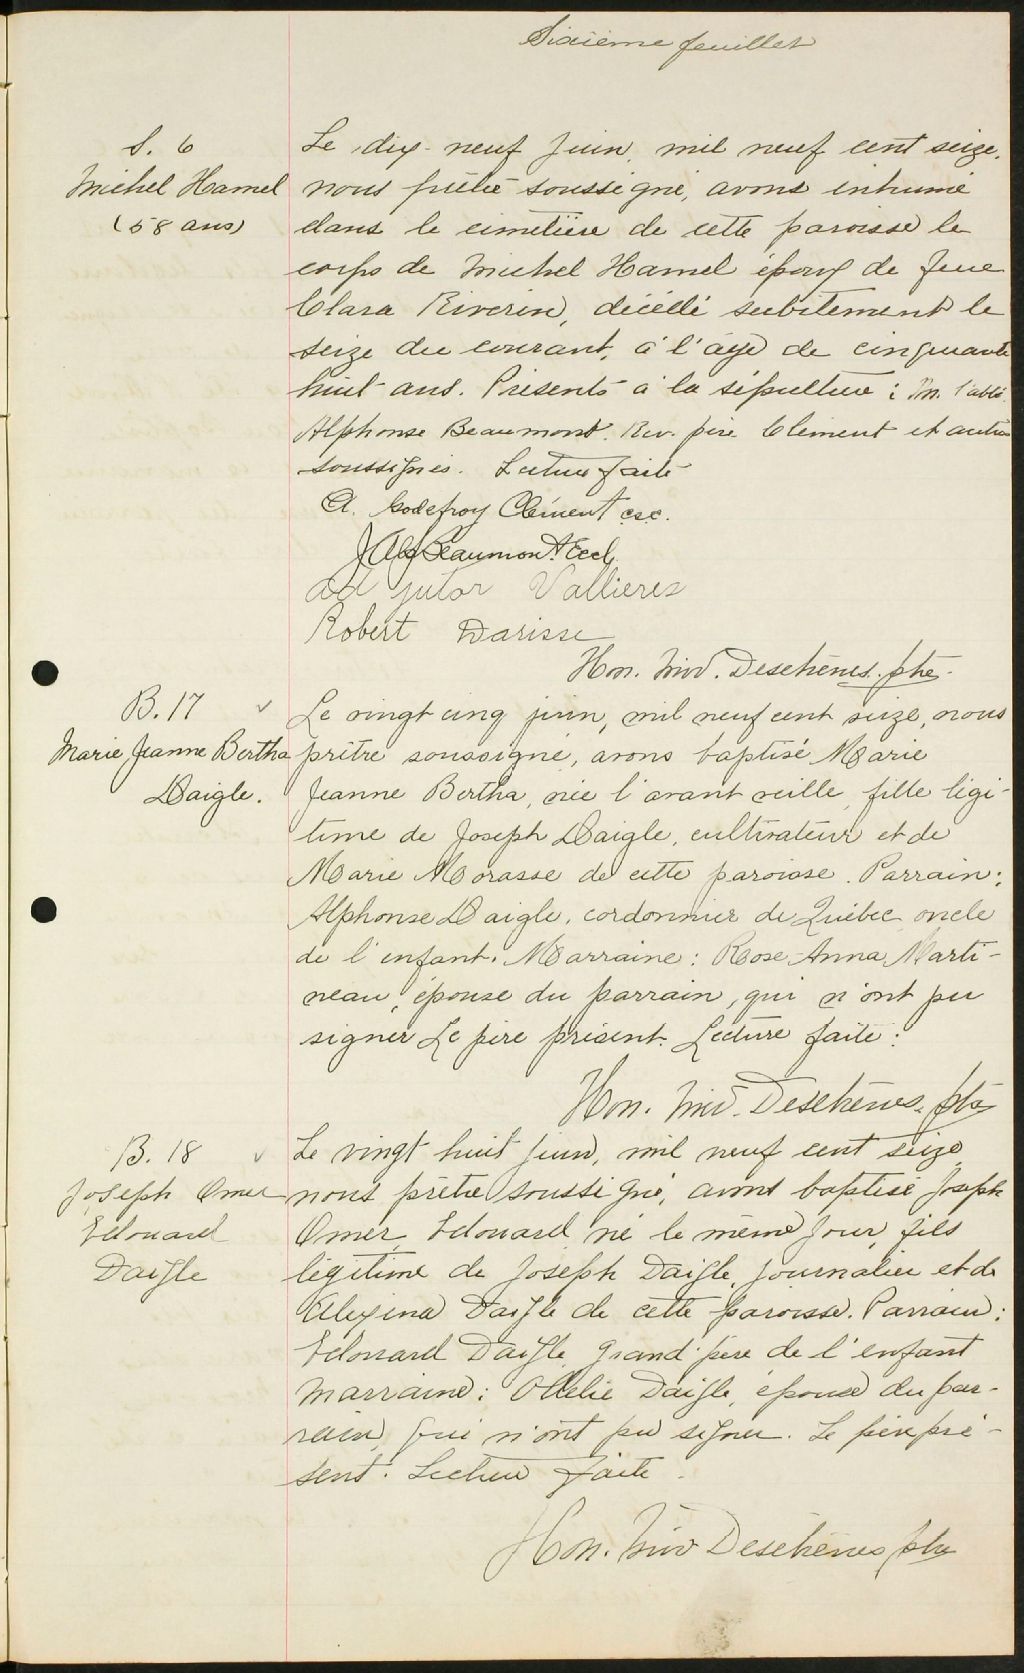 Sixième feuillet
S. 6
Michel Hamel
(58 ans)
Le dix-neuf Juin, mil neuf cent seize,
nous prêtre soussigné, avons inhumé
dans le cimetière de cette paroisse le
corps de Michel Hamel époux de feue
Clara Riverin, décédé subitement le
seize du courant, à l'âge de cinquante
huit ans. Présents à la sépulture: M. l'abbé
Alphonse Beaumont. Rev. père Clément et autres
soussignés. Lecture faite
A. Godefroy Clément csc.
J Alp Beaumont Eccl.
adjutor Vallieres
Robert Darisse
Hon. Deschênes. ptre.
B. 17
Marie Jeanne Bertha
Daigle.
Le vingt cinq juin, mil neuf cent seize, nous
prêtre soussigné, avons baptisé Marie
Jeanne Bertha, née l'avant veille, fille légi-
time de Joseph Daigle, cultivateur et de
Marie Morasse de cette paroisse. Parrain:
Alphonse Daigle, cordonnier de Québec oncle
de l'enfant. Marraine: Rose Anna Marti-
neau, épouse du parrain, qui n'ont pu
signer Le père présent. Lecture faite:
Hon. Deschênes. ptre
B. 18
Joseph Omer
Edouard
Daigle
Le vingt huit Juin, mil neuf cent seize
nous prêtre soussigné, avons baptisé Joseph
Omer Edouard né le même jour, fils
légitime de Joseph Daigle, journalier et de
Alexina Daigle de cette paroisse. Parrain:
Edouard Daigle, Grand-père de l'enfant
Marraine: Odelie Daigle, épouse du par-
rain, qui n'ont pu signer. Le père pré-
sent. Lecture faite.
Hon. Deschênes ptre